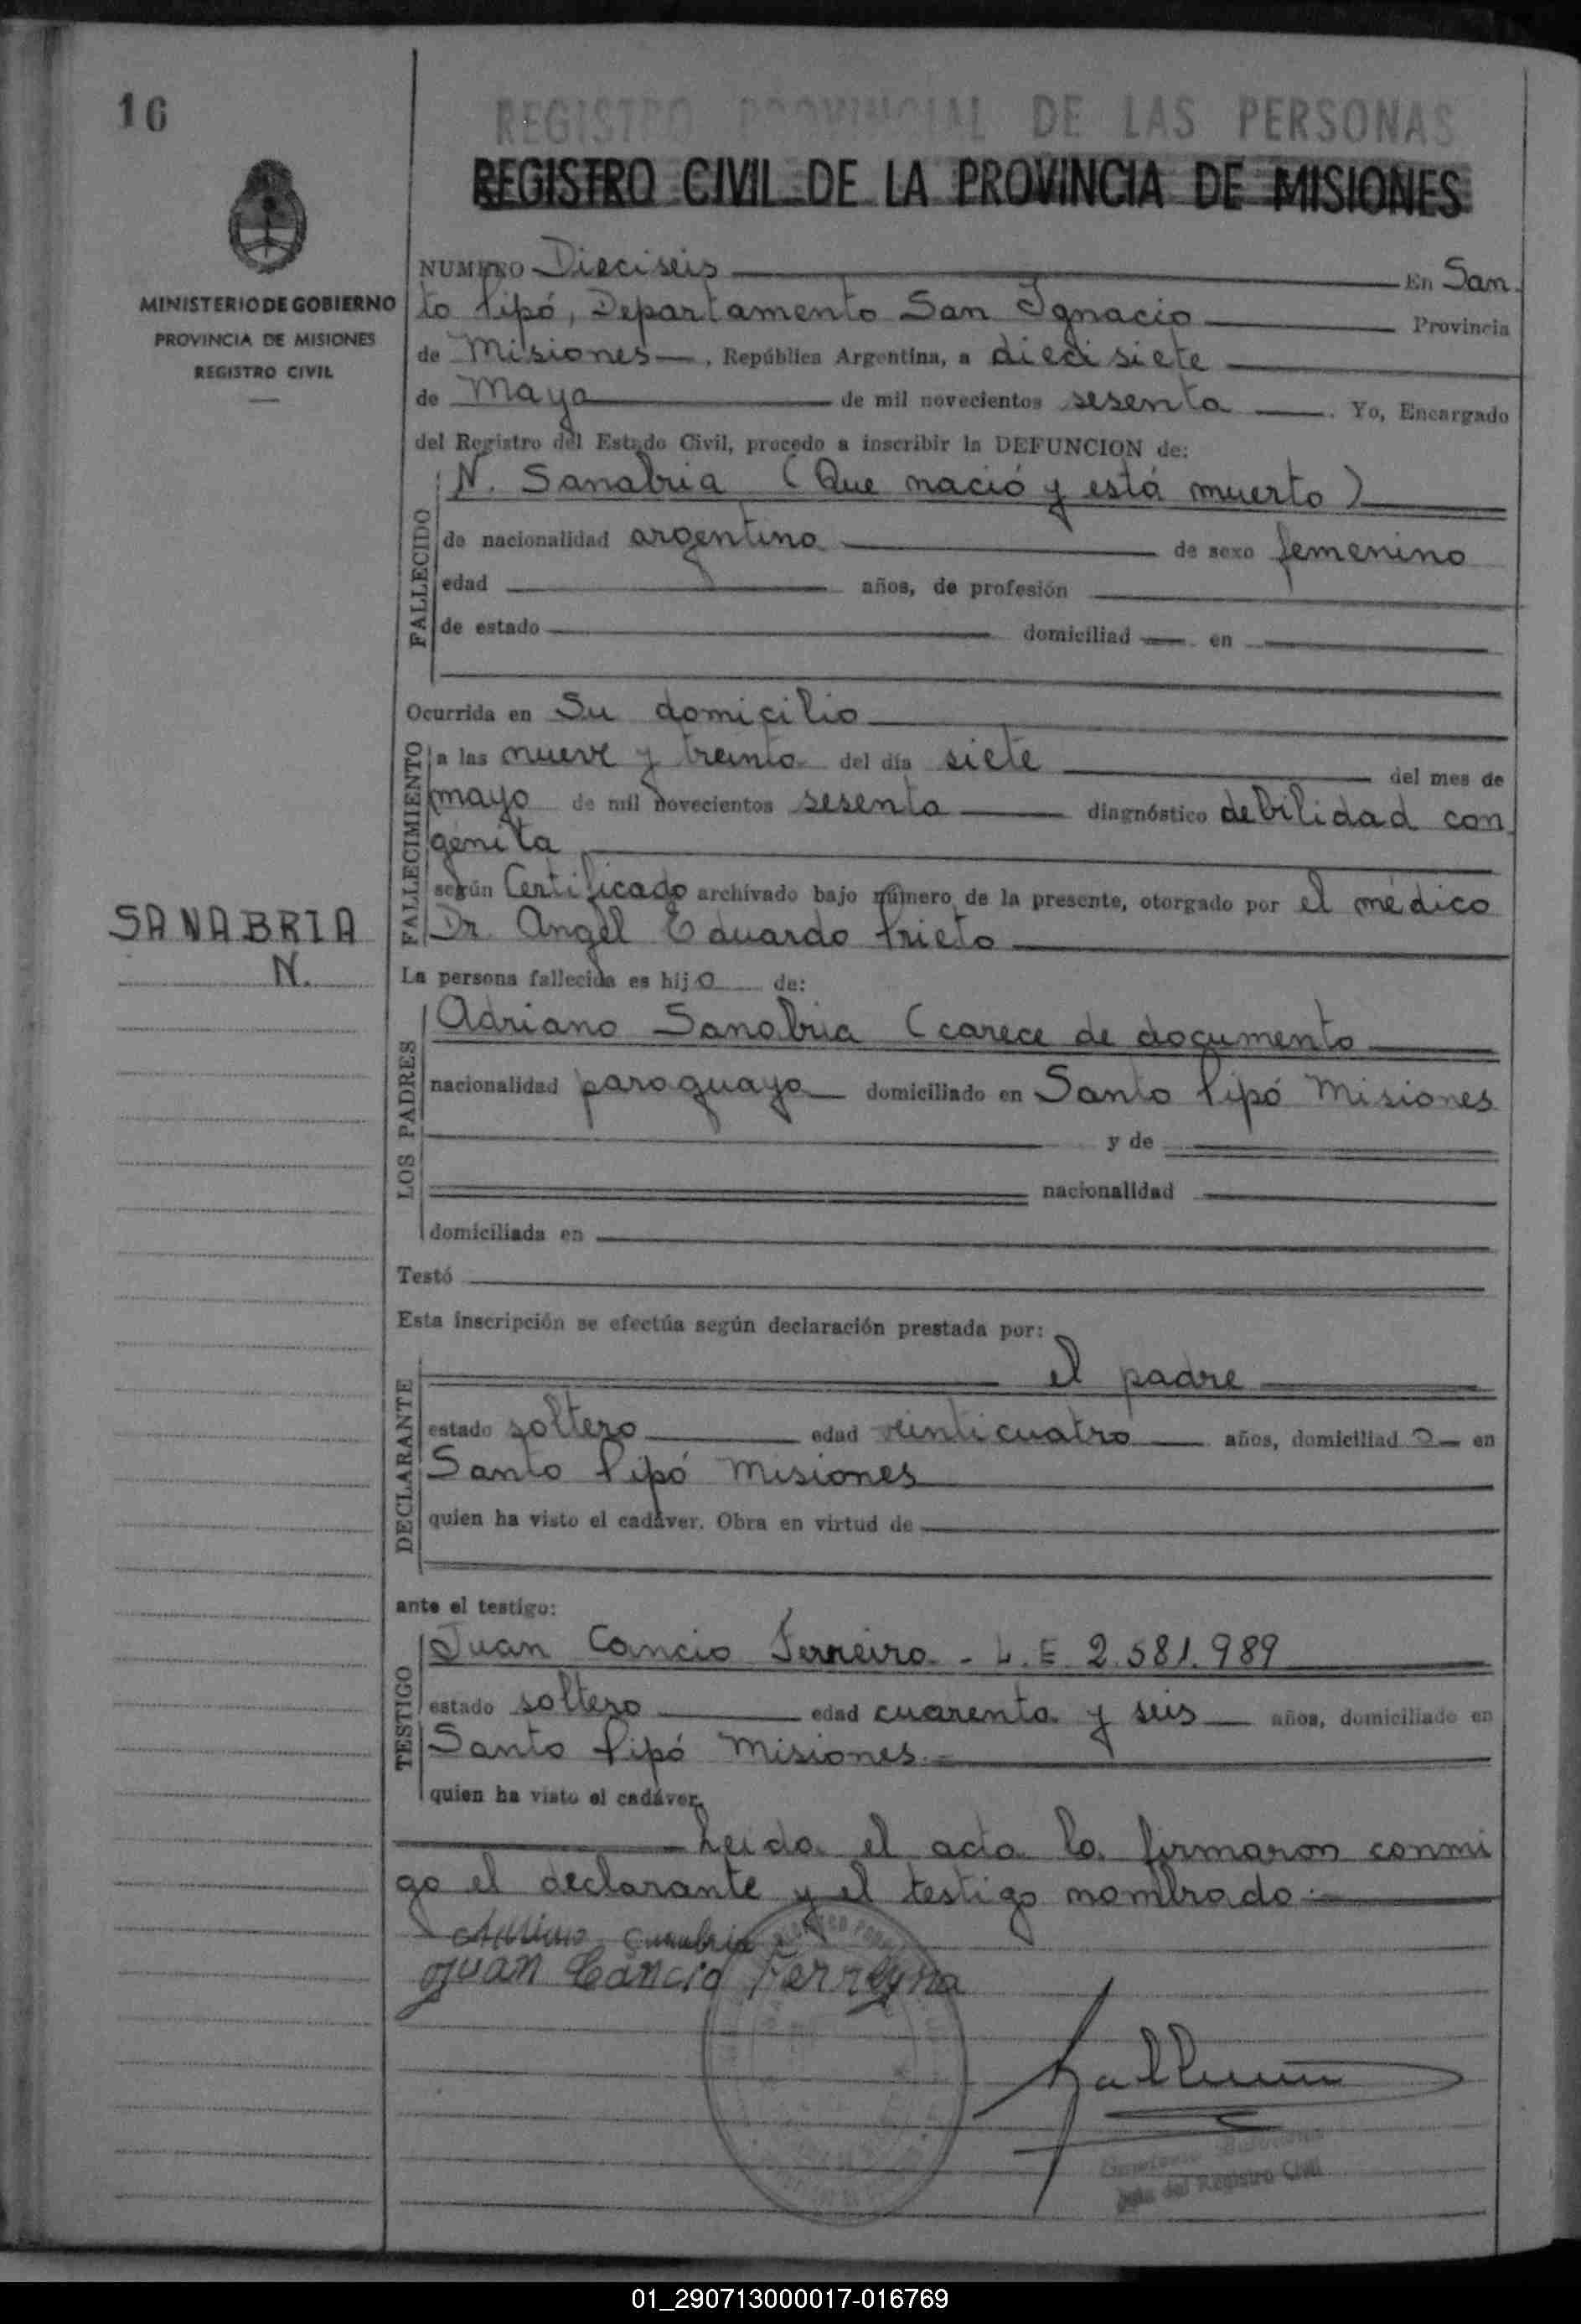 16
REGISTRO PROVINCIAL DE LAS PERSONAS
REGISTRO CIVIL DE LA PROVINCIA DE MISIONES
MINISTERIO DE GOBIERNO
PROVINCIA DE MISIONES
REGISTRO CIVIL
NUMERO Dieciseis En San
to Pipó, Departamento San Ignacio Provincia
de Misiones, República Argentina, a diecisiete
de Mayo de mil novecientos sesenta. Yo, Encargado
del Registro del Estado Civil, procedo a inscribir la DEFUNCION de:
FALLECIDO
N. Sanabria (Que nació y está muerto)
de nacionalidad argentina de sexo femenino
edad años, de profesión
de estado domiciliad en
Ocurrida en Su domicilio
FALLECIMIENTO
a las nueve y treinta del día siete del mes de
mayo de mil novecientos sesenta diagnóstico debilidad con
génita
según Certificado archivado bajo número de la presente, otorgado por el médico
Dr. Angel Eduardo Prieto
SANABRIA
N.
La persona fallecida es hija de:
LOS PADRES
Adriano Sanabria (carece de documento
nacionalidad paraguaya domiciliado en Santo Pipó Misiones
y de
nacionalidad
domiciliada en
Testó
Esta inscripción se efectúa según declaración prestada por:
DECLARANTE
el padre
estado soltero edad veinticuatro años, domiciliado en
Santo Pipó Misiones
quien ha visto el cadáver. Obra en virtud de
ante el testigo:
TESTIGO
Juan Cancio Ferreira - L. E. 2.581.989
estado soltero edad cuarenta y seis años, domiciliado en
Santo Pipó Misiones.=
quien ha visto el cadáver.
Leida el acta la firmaron conmi
go el declarante y el testigo nombrado.-
Juan Cancio Ferreyra
Jefe del Registro Civil
01_290713000017-016769